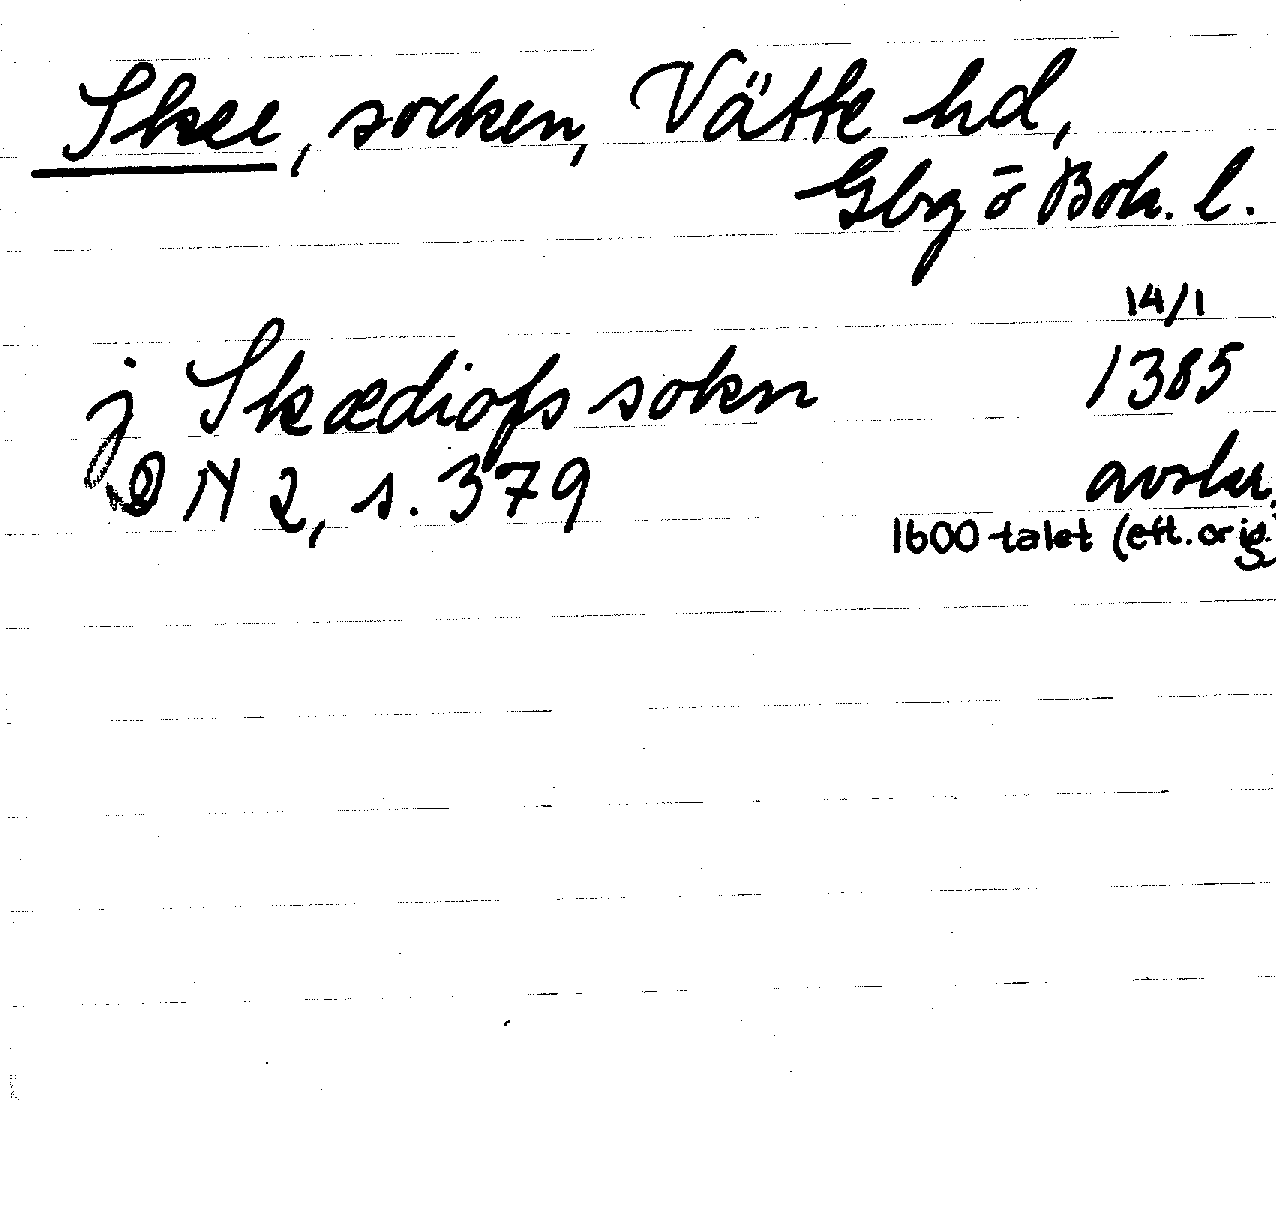 Skee, socken, Vätte hd,
Gbg o Boh. l.
14/1
j Skædiofs sokn 1385
DN 2, s. 379 avskr.
1600-talet (eft. orig.